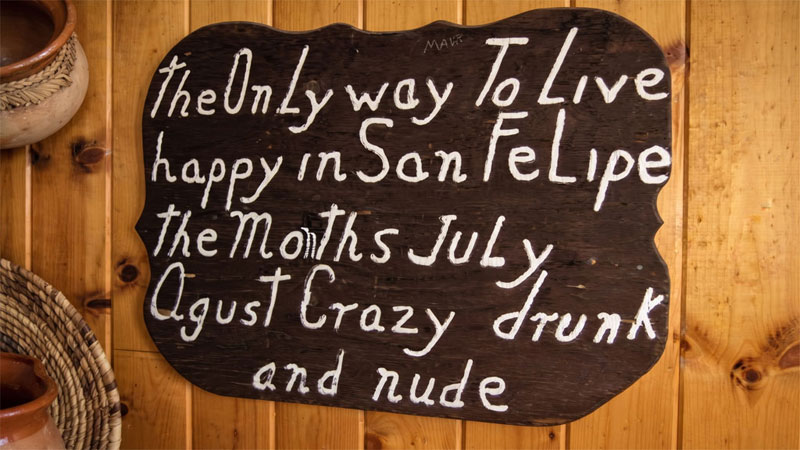 MAVI
the Only way To Live
happy in San FeLipe
the Months JuLy
Agust Crazy drunk
and nude